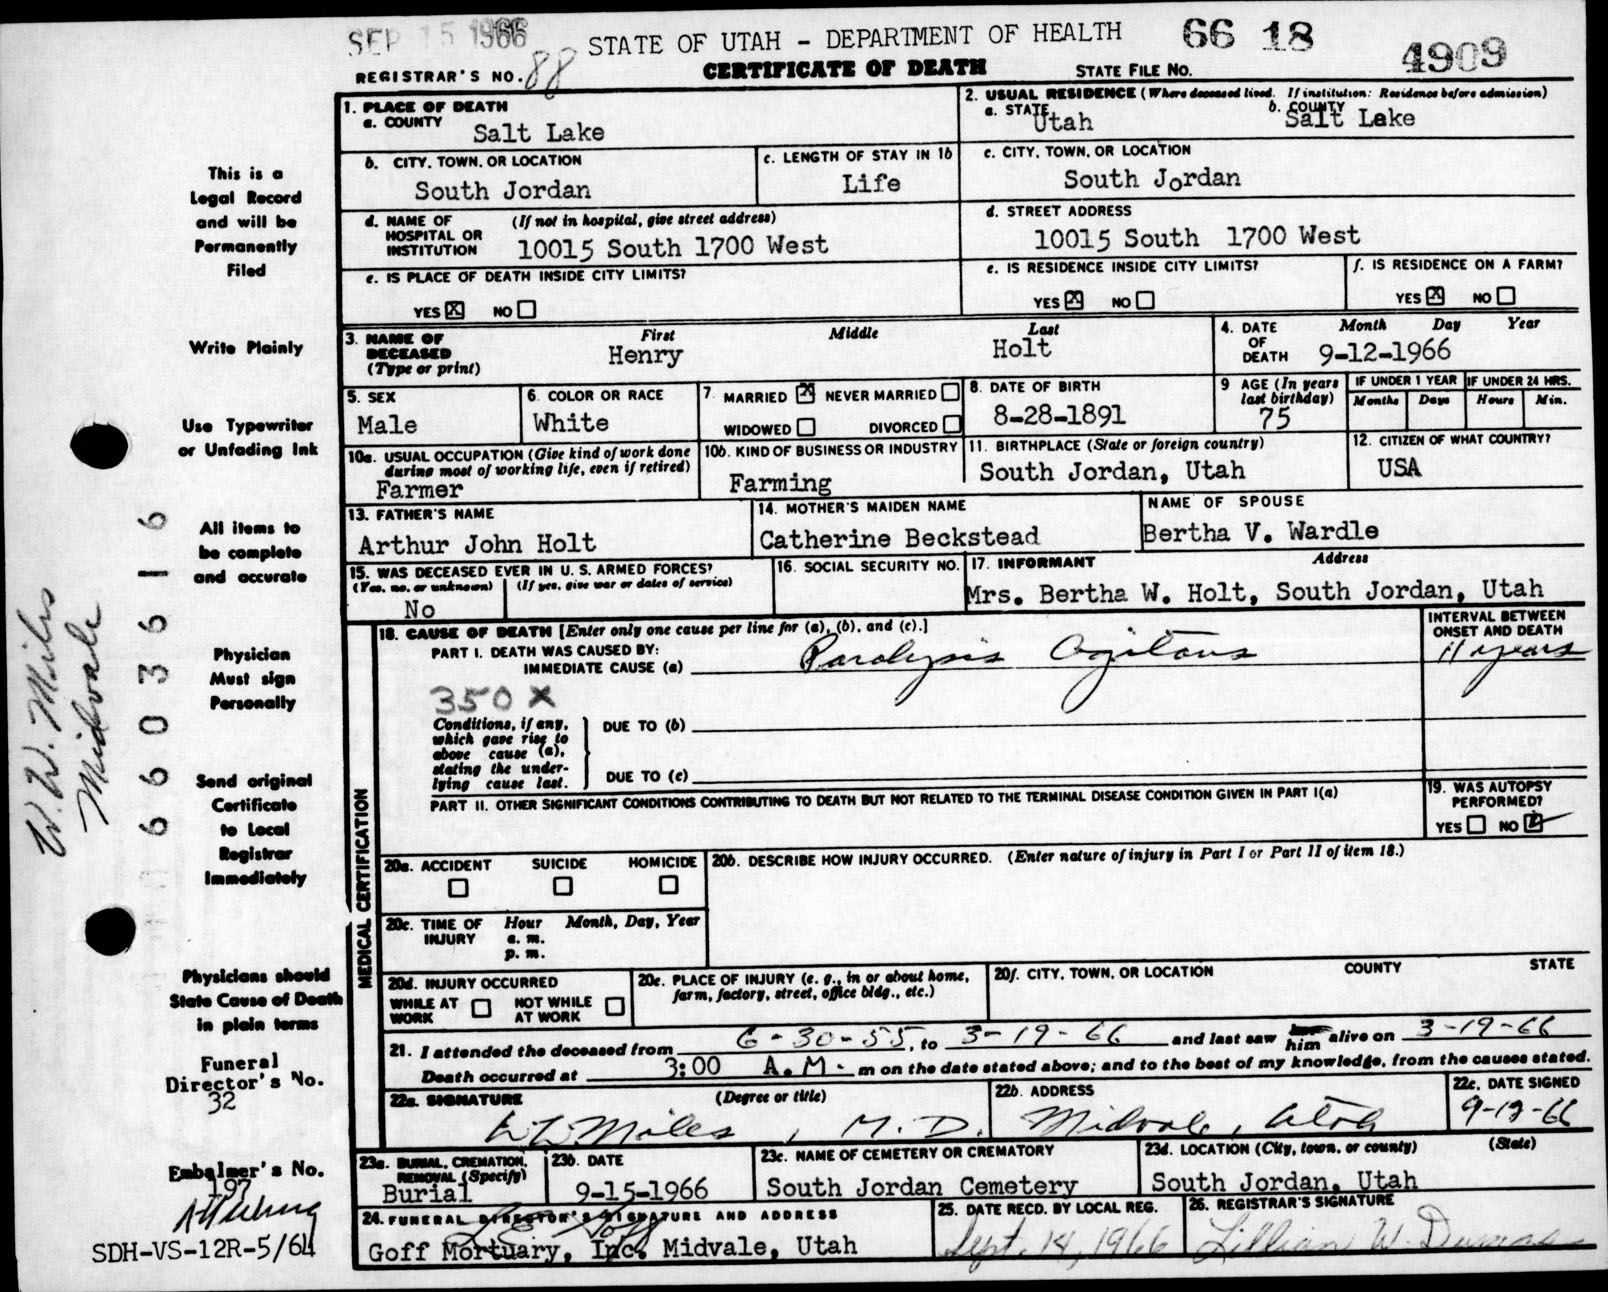 SEP 15 1966
STATE OF UTAH - DEPARTMENT OF HEALTH
66 18
4909
REGISTRAR'S NO. 88
CERTIFICATE OF DEATH
STATE FILE NO.
1. PLACE OF DEATH
a. COUNTY Salt Lake
2. USUAL RESIDENCE (Where deceased lived. If institution: Residence before admission)
a. STATE Utah
b. COUNTY Salt Lake
b. CITY, TOWN, OR LOCATION
South Jordan
c. LENGTH OF STAY IN 1b
Life
c. CITY, TOWN, OR LOCATION
South Jordan
d. NAME OF HOSPITAL OR INSTITUTION
(If not in hospital, give street address)
10015 South 1700 West
d. STREET ADDRESS
10015 South 1700 West
e. IS PLACE OF DEATH INSIDE CITY LIMITS?
YES X NO
e. IS RESIDENCE INSIDE CITY LIMITS?
YES X NO
f. IS RESIDENCE ON A FARM?
YES X NO
3. NAME OF DECEASED (Type or print)
First Middle Last
Henry Holt
4. DATE OF DEATH
Month Day Year
9-12-1966
5. SEX
Male
6. COLOR OR RACE
White
7. MARRIED X NEVER MARRIED
WIDOWED DIVORCED
8. DATE OF BIRTH
8-28-1891
9 AGE (In years last birthday)
75
IF UNDER 1 YEAR
Months Days
IF UNDER 24 HRS.
Hours Min.
10a. USUAL OCCUPATION (Give kind of work done during most of working life, even if retired)
Farmer
10b. KIND OF BUSINESS OR INDUSTRY
Farming
11. BIRTHPLACE (State or foreign country)
South Jordan, Utah
12. CITIZEN OF WHAT COUNTRY?
USA
13. FATHER'S NAME
Arthur John Holt
14. MOTHER'S MAIDEN NAME
Catherine Beckstead
NAME OF SPOUSE
Bertha V. Wardle
15. WAS DECEASED EVER IN U. S. ARMED FORCES?
(Yes, no, or unknown) (If yes, give war or dates of service)
No
16. SOCIAL SECURITY NO.
17. INFORMANT Address
Mrs. Bertha W. Holt, South Jordan, Utah
MEDICAL CERTIFICATION
18. CAUSE OF DEATH [Enter only one cause per line for (a), (b), and (c).]
INTERVAL BETWEEN ONSET AND DEATH
PART I. DEATH WAS CAUSED BY:
IMMEDIATE CAUSE (a) Paralysis Agitans
11 years
350 X
Conditions, if any, which gave rise to above cause (a), stating the underlying cause last.
DUE TO (b)
DUE TO (c)
PART II. OTHER SIGNIFICANT CONDITIONS CONTRIBUTING TO DEATH BUT NOT RELATED TO THE TERMINAL DISEASE CONDITION GIVEN IN PART I(a)
19. WAS AUTOPSY PERFORMED?
YES NO
20a. ACCIDENT SUICIDE HOMICIDE
20b. DESCRIBE HOW INJURY OCCURRED. (Enter nature of injury in Part I or Part II of item 18.)
20c. TIME OF INJURY
Hour Month, Day, Year
a. m.
p. m.
20d. INJURY OCCURRED
WHILE AT WORK NOT WHILE AT WORK
20e. PLACE OF INJURY (e. g., in or about home, farm, factory, street, office bldg., etc.)
20f. CITY, TOWN, OR LOCATION COUNTY STATE
21. I attended the deceased from 6-30-55, to 3-19-66 and last saw him alive on 3-19-66
Death occurred at 3:00 A.M. m on the date stated above; and to the best of my knowledge, from the causes stated.
22a. SIGNATURE (Degree or title)
W W Miles, M.D.
22b. ADDRESS
Midvale, Utah
22c. DATE SIGNED
9-12-66
23a. BURIAL, CREMATION, REMOVAL (Specify)
Burial
23b. DATE
9-15-1966
23c. NAME OF CEMETERY OR CREMATORY
South Jordan Cemetery
23d. LOCATION (City, town, or county) (State)
South Jordan, Utah
24. FUNERAL DIRECTOR'S SIGNATURE AND ADDRESS
Goff Mortuary, Inc. Midvale, Utah
25. DATE RECD. BY LOCAL REG.
Sept. 14, 1966
26. REGISTRAR'S SIGNATURE
Lillian W.
This is a
Legal Record
and will be
Permanently
Filed
Write Plainly
Use Typewriter
or Unfading Ink
All items to
be complete
and accurate
Physician
Must sign
Personally
Send original
Certificate
to Local
Registrar
Immediately
Physicians should
State Cause of Death
in plain terms
Funeral
Director's No.
32
Embalmer's No.
197
SDH-VS-12R-5/64
W. W. Miles
Midvale
66 0 3 6 1 6